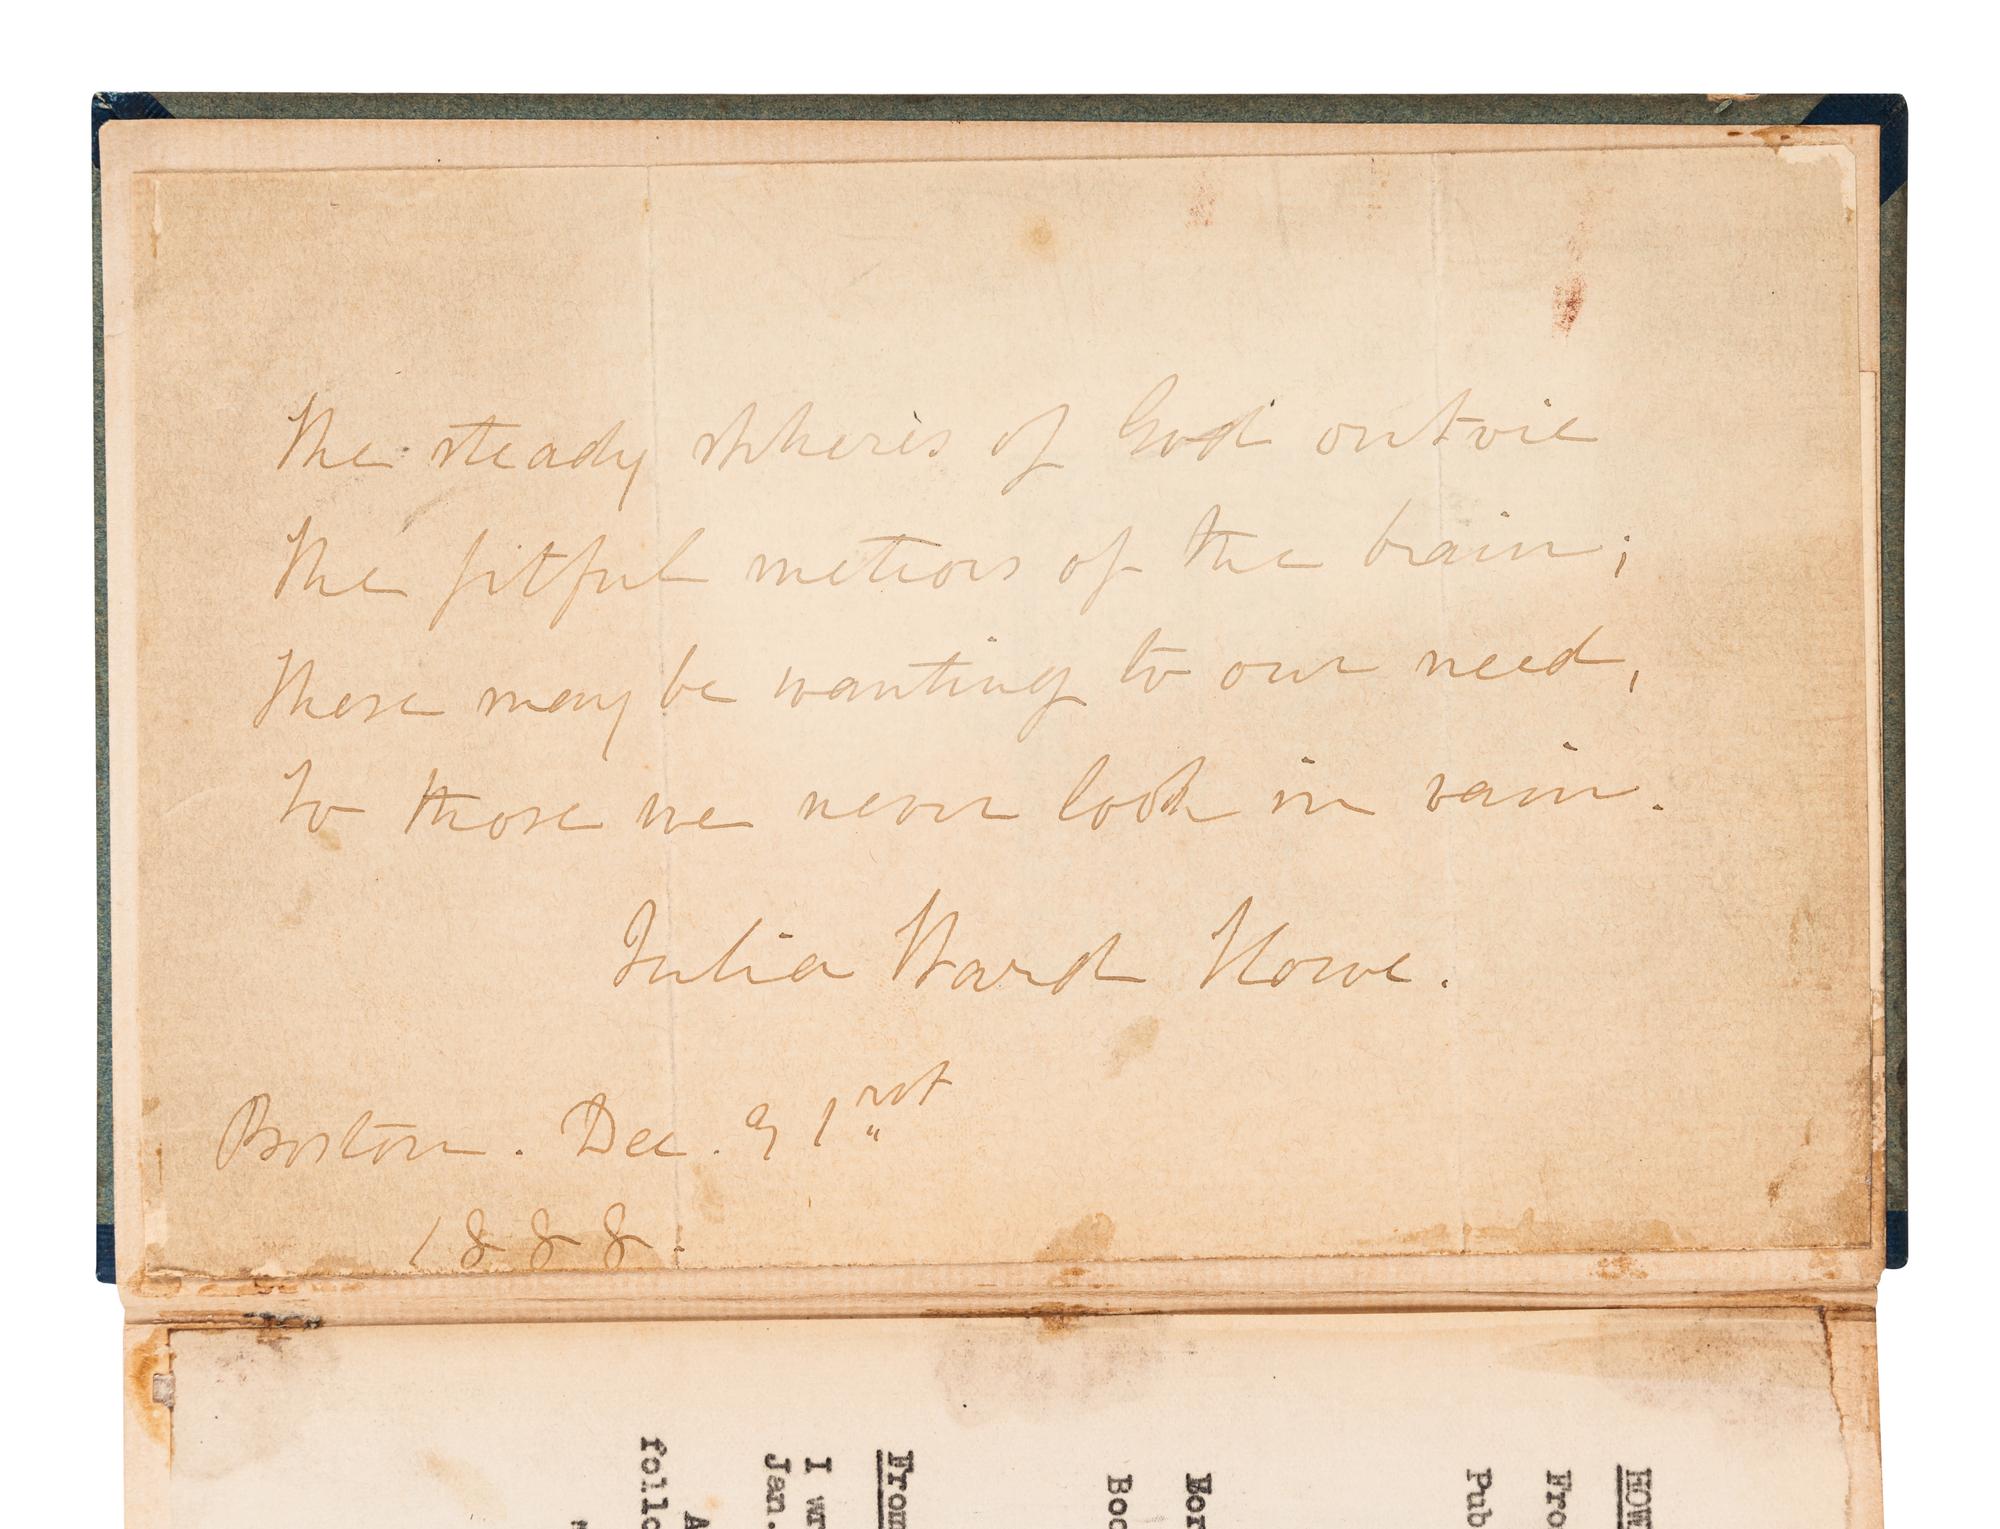 The steady spheres of God outvie
The fitful meteors of the brain;
These may be wanting to our need,
To those we never look in vain.
Julia Ward Howe.
Boston. Dec. 31rst
1888.
HOW
Fro
Pub
Bor
Boo
From
I wr
Jan.
A
follo